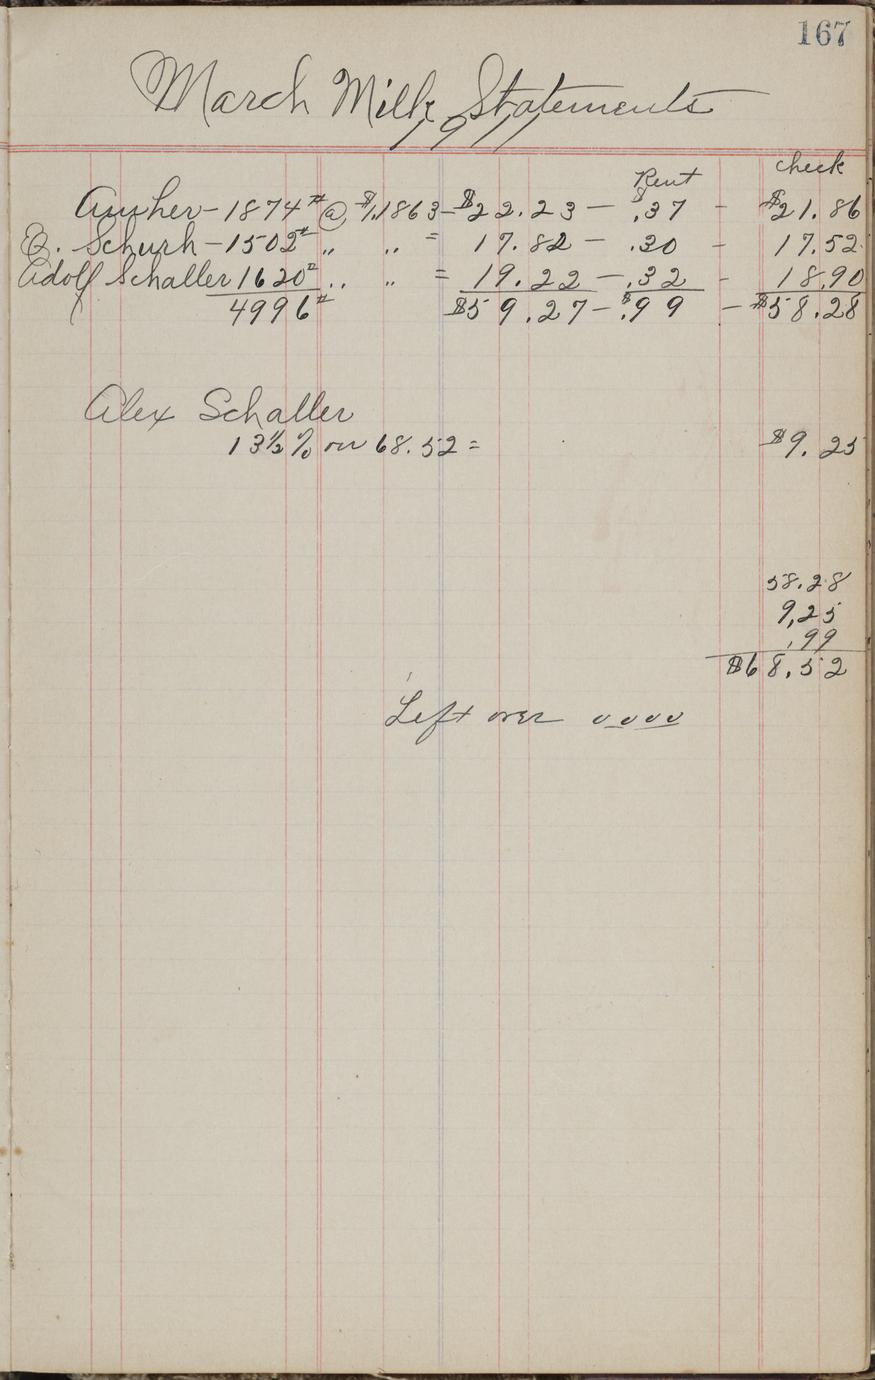 167
March Milk Statements
1911
Rent check
Amher - 1874# @ $1.1863 - $22.23 - $.37 - $21.86
E. Schurh - 1502# " " = 17.82 - .30 - 17.52
Adolf Schaller 1620# " " = 19.22 - .32 - 18.90
4996# $59.27 - $.99 - $58.28
Alex Schaller
13½% on 68.52 = $9.25
58.28
9,25
.99
$68.52
Left over 0000